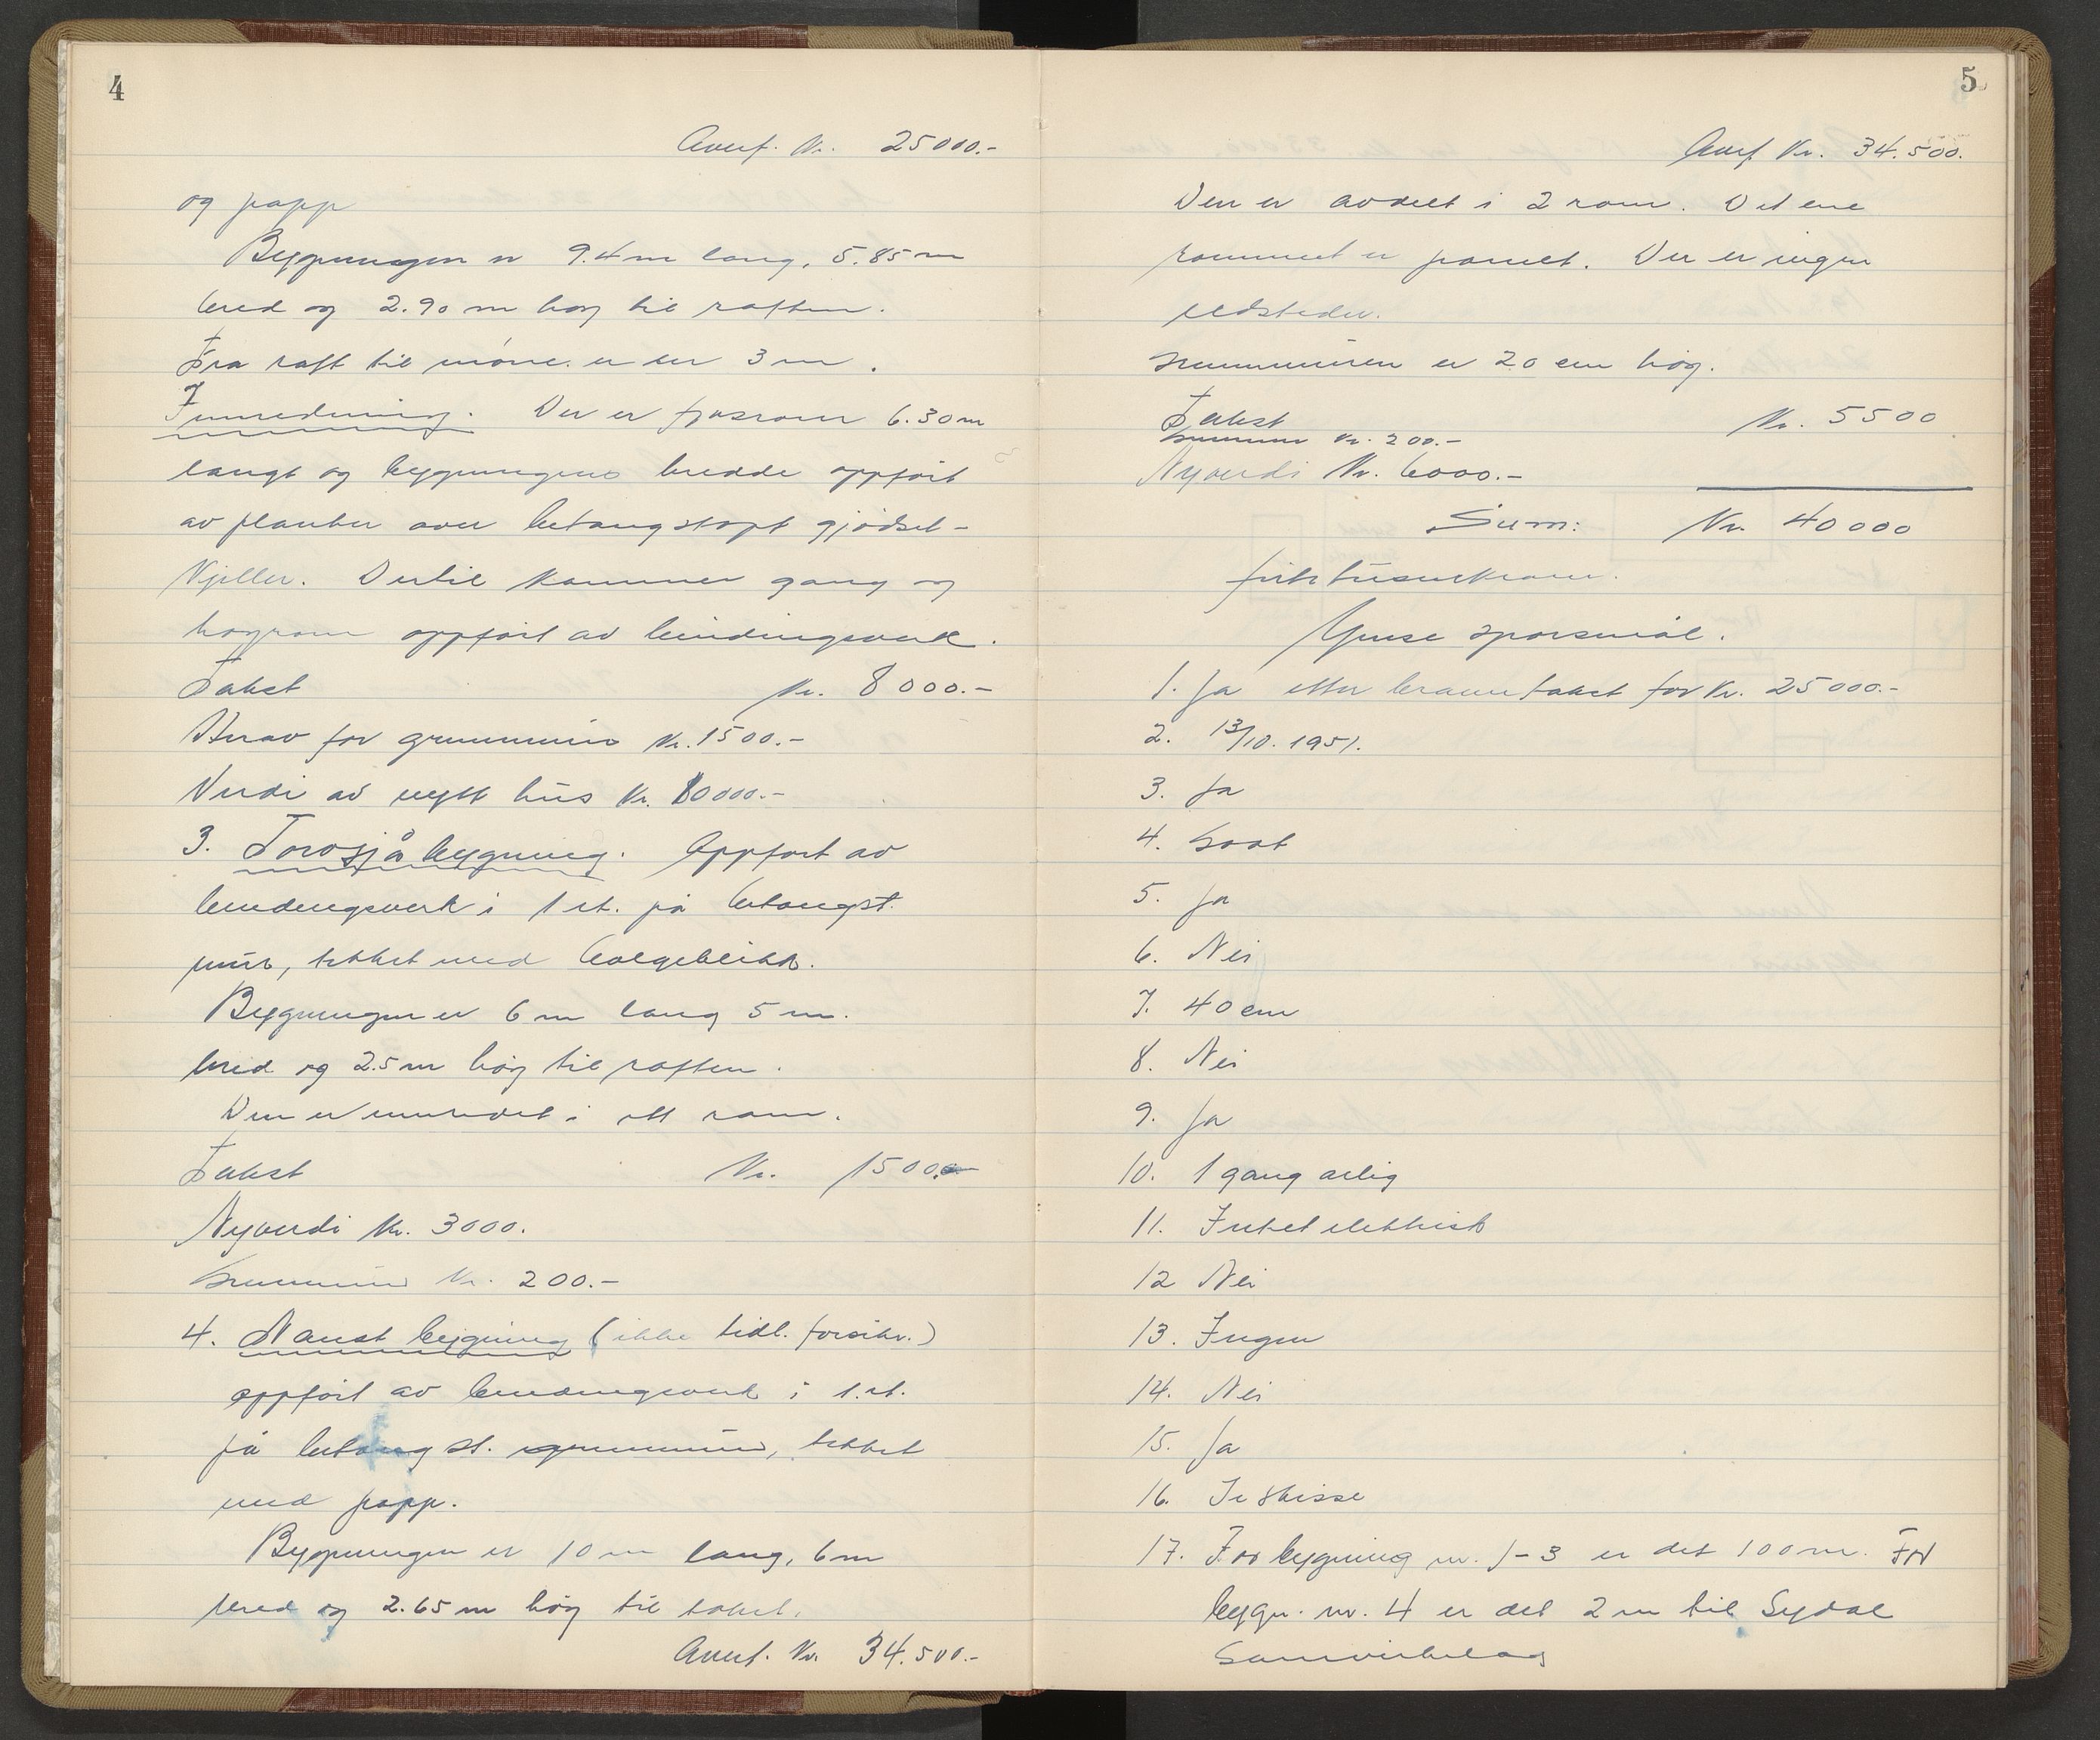 4
Överf. Kr. 25000.-
og papp
Bygningen er 9.4 m lang, 5.85 m
bred og 2.90 m høg til raften.
Fra raft til møne er der 3 m.
Innredning. Der er fjøsrom 6.30 m
langt og bygningens bredde oppført
av planker over betongstøpt gjødsel-
kjeller. Dertil kommer gang og
høyrom oppført av bindingsverk.
Takst Kr. 8000.-
Herav for grunnmur Kr. 1500.-
Verdi av nytt hus Kr. 10000.-
3. Torvsjåbygning. Oppført av
bindingsverk i 1 et. på betongst.
mur, tekket med bølgeblikk.
Bygningen er 6 m lang 5 m.
bred og 2.5 m høg til raften.
Den er innredet i ett rom.
Takst Kr. 1500.-
Nyverdi Kr. 3000.
Grunnmur Kr. 200.-
4. Naustbygning (ikke tidl. forsikr.)
oppført av bindingsverk i 1. et.
på betong st. grunnmur, tekket
med papp.
Bygningen er 10 m lang, 6 m
bred og 2.65 m høg til taket.
Överf. Kr. 34.500.-
5
Överf Kr. 34.500.
Den er avdelt i 2 rom. Det ene
rommet er panelt. Der er ingen
ildsteder.
Grunnmuren er 20 cm høg.
Takst Kr. 5500
Grunnmur Kr. 200.-
Nyverdi Kr. 6000.-
Sum: Kr. 40000
førtitusenkroner.
Ymse spørsmål.
1. Ja etter branntakst for Kr. 25000.-
2. 13/10. 1951.
3. Ja
4. Godt
5. Ja
6. Nei
7. 40 cm
8. Nei
9. Ja
10. 1 gang årlig
11. Intet elektrisk
12 Nei
13. Ingen
14. Nei
15. Ja
16. Se skisse
17. For bygning nr. 1-3 er det 100 m. For
bygn. nr. 4 er det 2 m til Sydal
Samvirkelag